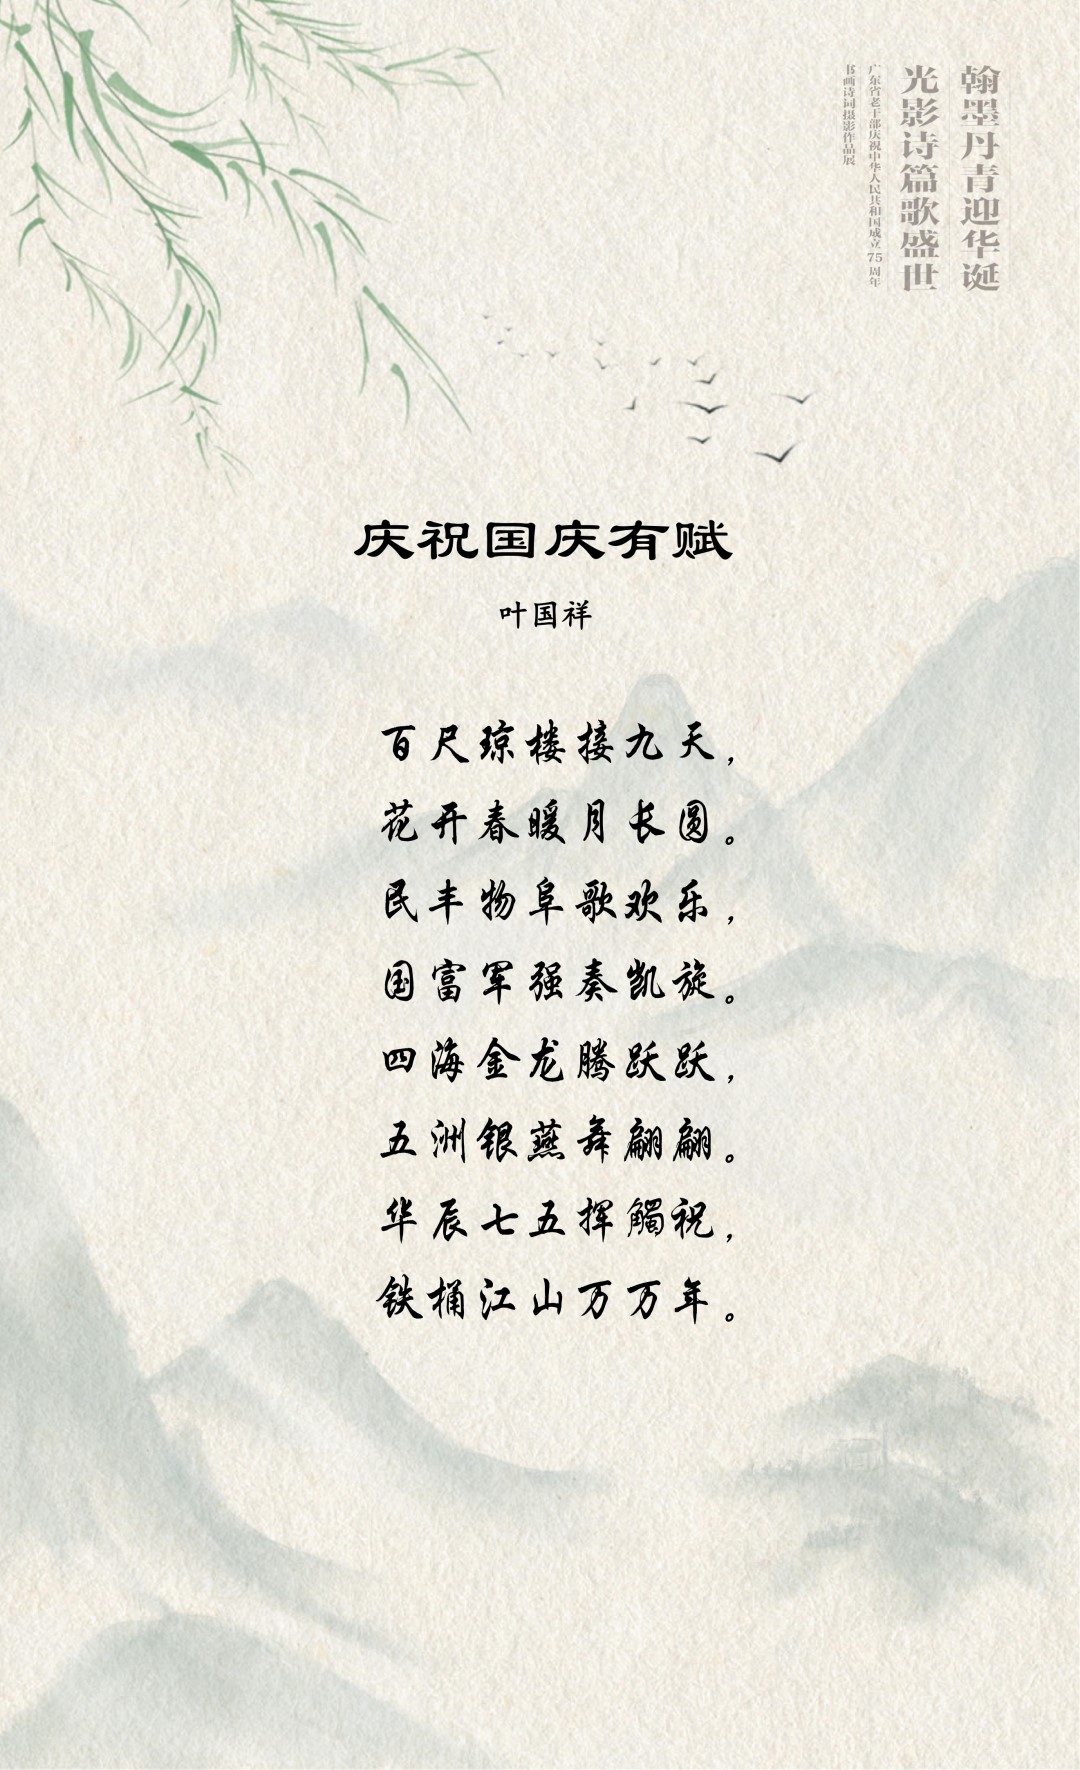 翰墨丹青迎华诞
光影诗篇歌盛世
广东省老干部庆祝中华人民共和国成立75周年
书画诗词摄影作品展
庆祝国庆有赋
叶国祥
百尺琼楼接九天，
花开春暖月长圆。
民丰物阜歌欢乐，
国富军强奏凯旋。
四海金龙腾跃跃，
五洲银燕舞翩翩。
华辰七五挥觸祝，
铁桶江山万万年。